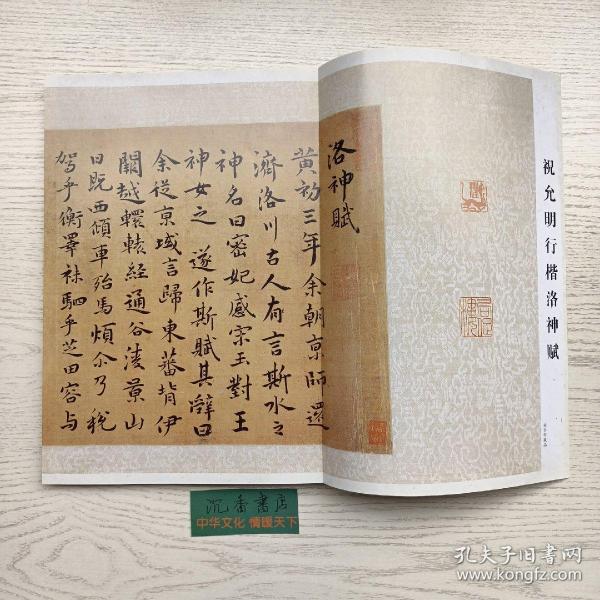 祝允明行楷洛神赋
洛神賦
黄初三年余朝京師還
濟洛川古人有言斯水之
神名曰密妃感宋玉對王
神女之 遂作斯賦其辭曰
余從京域言歸東蕃背伊
闕越轘轅經通谷陵景山
日既西傾車殆馬煩尒乃税
駕乎衡澤秣駟乎芝田容与
沉香書店
中华文化 情暖天下
孔夫子旧书网
www.kongfz.com